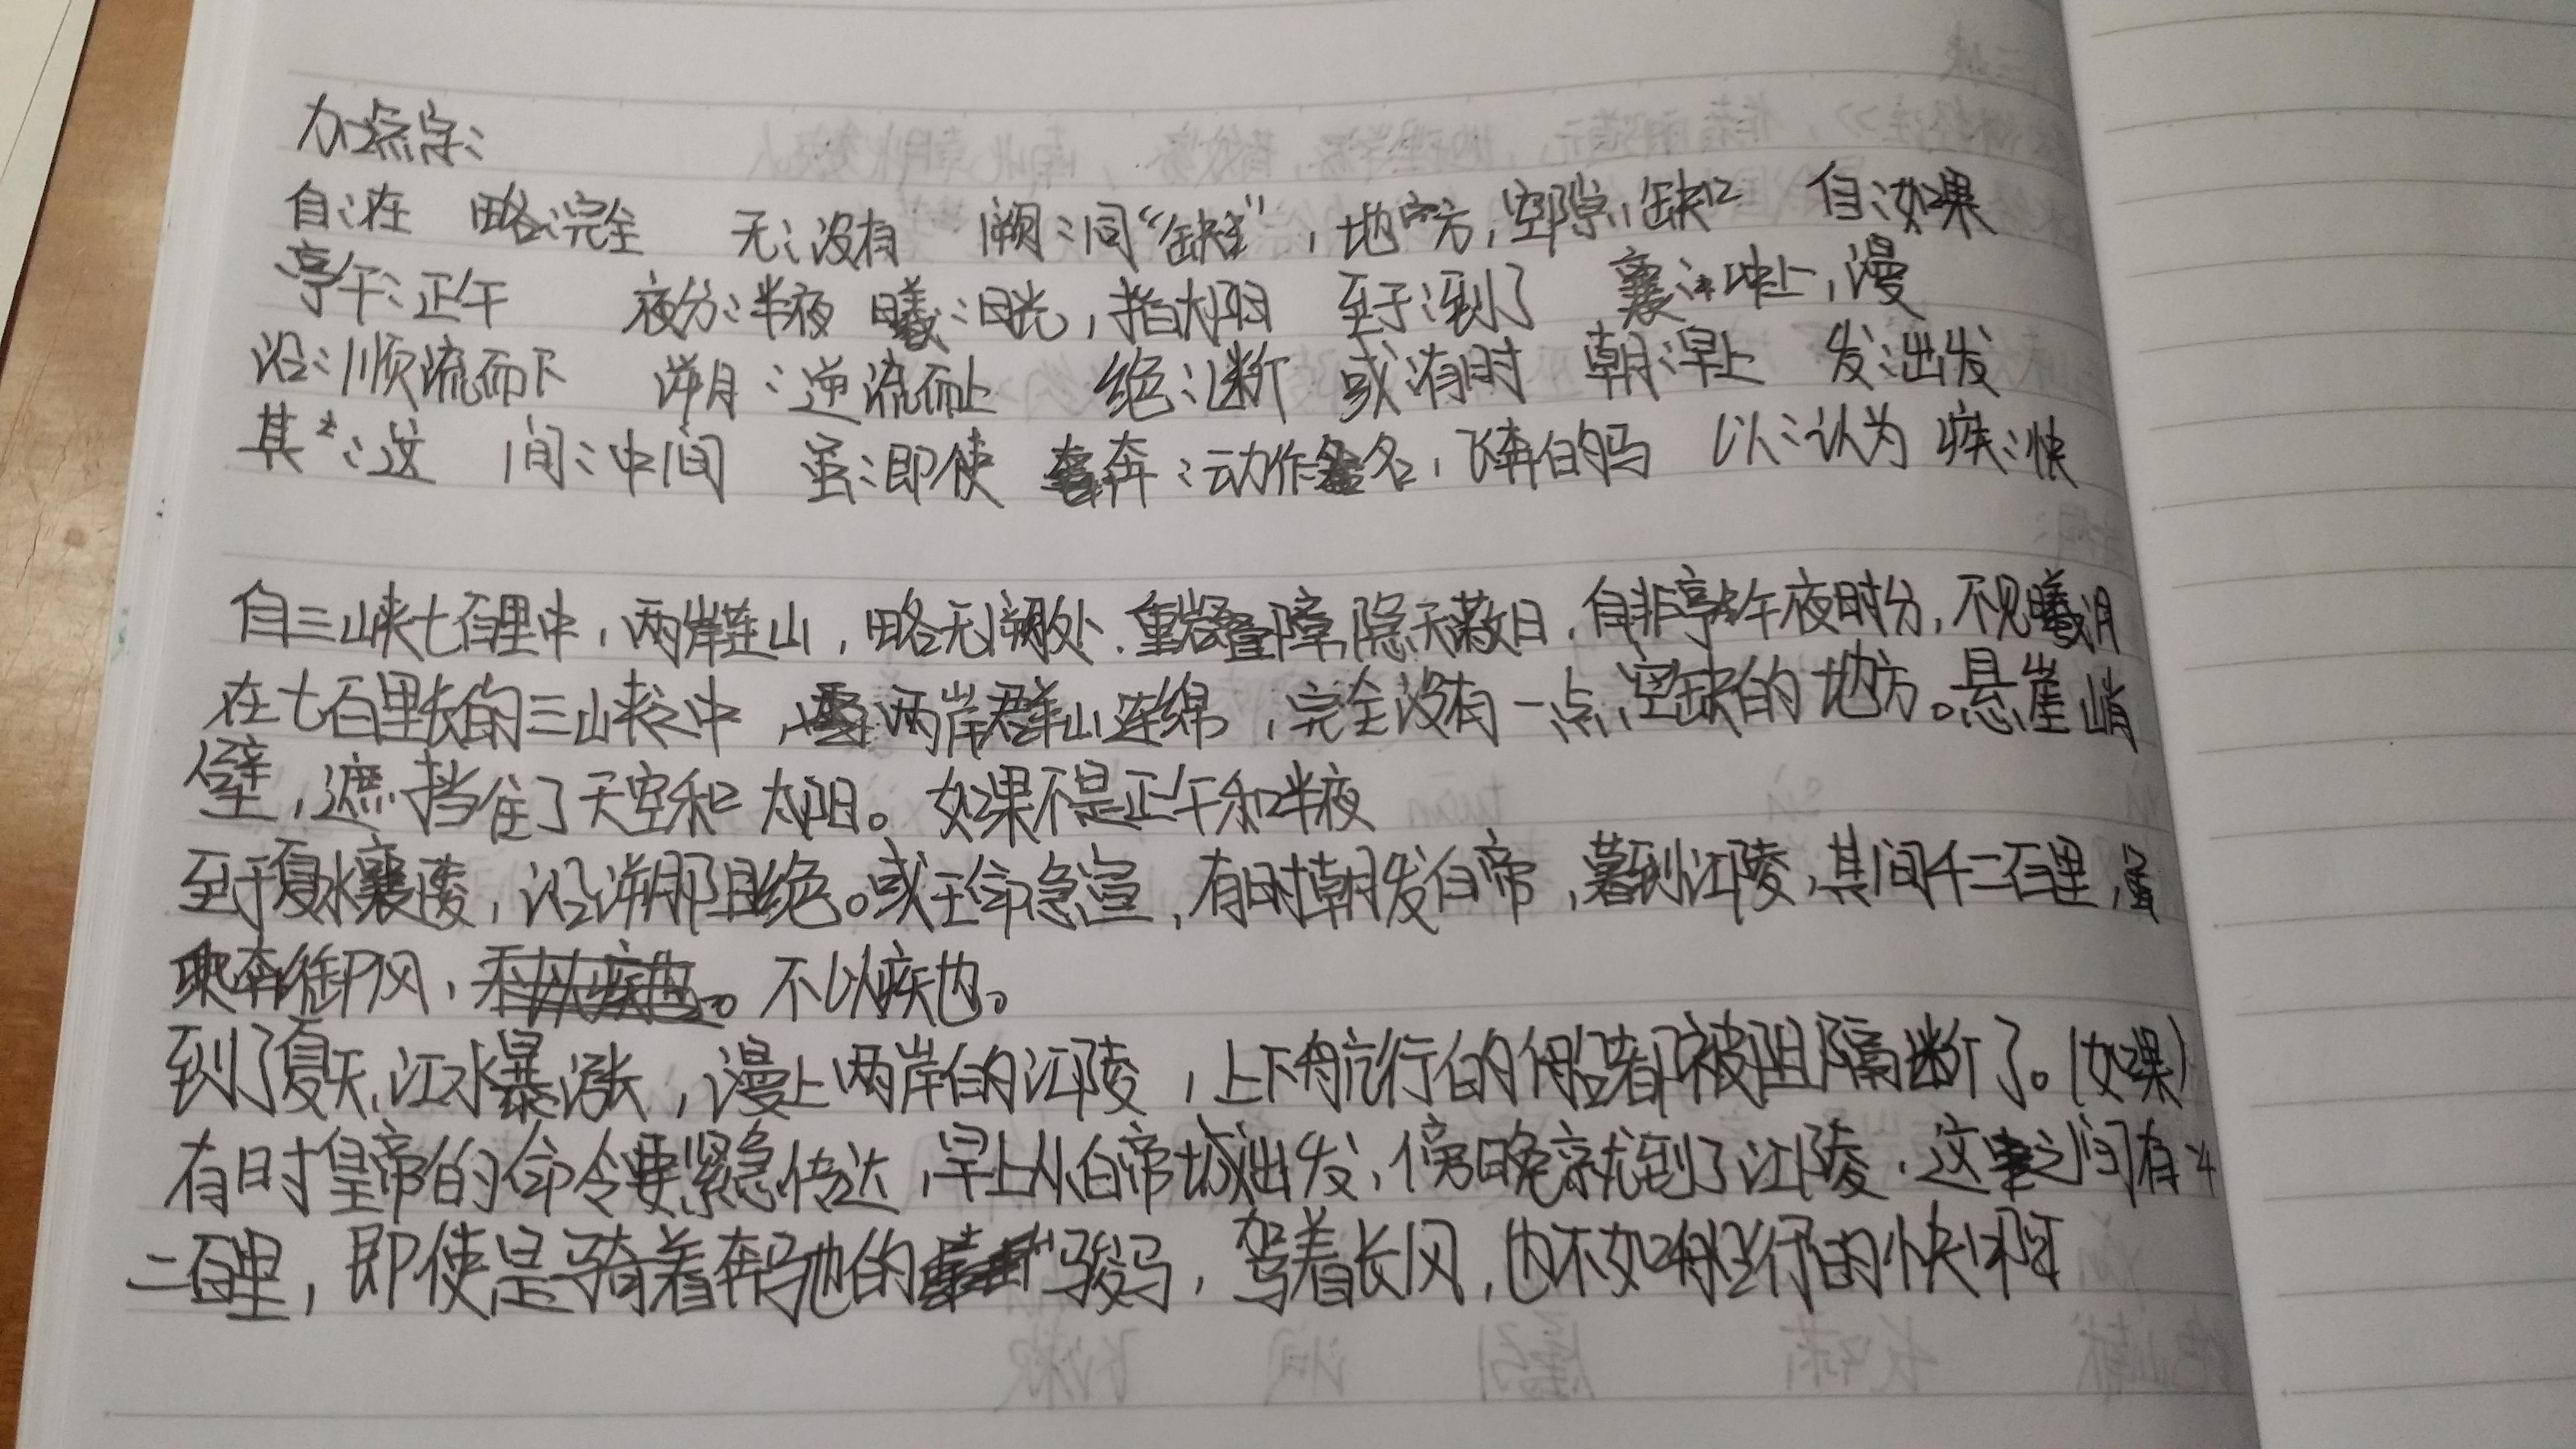 加点字：
自：在 略：完全 无：没有 阙：同“缺”，地方，空隙、缺口 自：如果
亭午：正午 夜分：半夜 曦：日光，指太阳 至于：到了 襄：冲上，漫
沿：顺流而下 溯：逆流而上 绝：断 或：有时 朝：早上 发：出发
其：这 间：中间 虽：即使 奔：动作名，飞奔的马 以：认为 疾：快
自三峡七百里中，两岸连山，略无阙处．重岩叠障，隐天蔽日．自非亭午夜时分，不见曦月
在七百里长的三峡之中，两岸群山连绵，完全没有一点空缺的地方。悬崖峭
壁，遮挡住了天空和太阳。如果不是正午和半夜
至于夏水襄陵，沿溯阻绝。或王命急宣，有时朝发白帝，暮到江陵，其间千二百里，虽
乘奔御风，不以疾也。
到了夏天，江水暴涨，漫上两岸的江陵，上下航行的船都被阻隔断了。（如果）
有时皇帝的命令要紧急传达，早上从白帝城出发，傍晚就到了江陵．这之间有千
二百里，即使是骑着奔驰的骏马，驾着长风，也不如船行的快